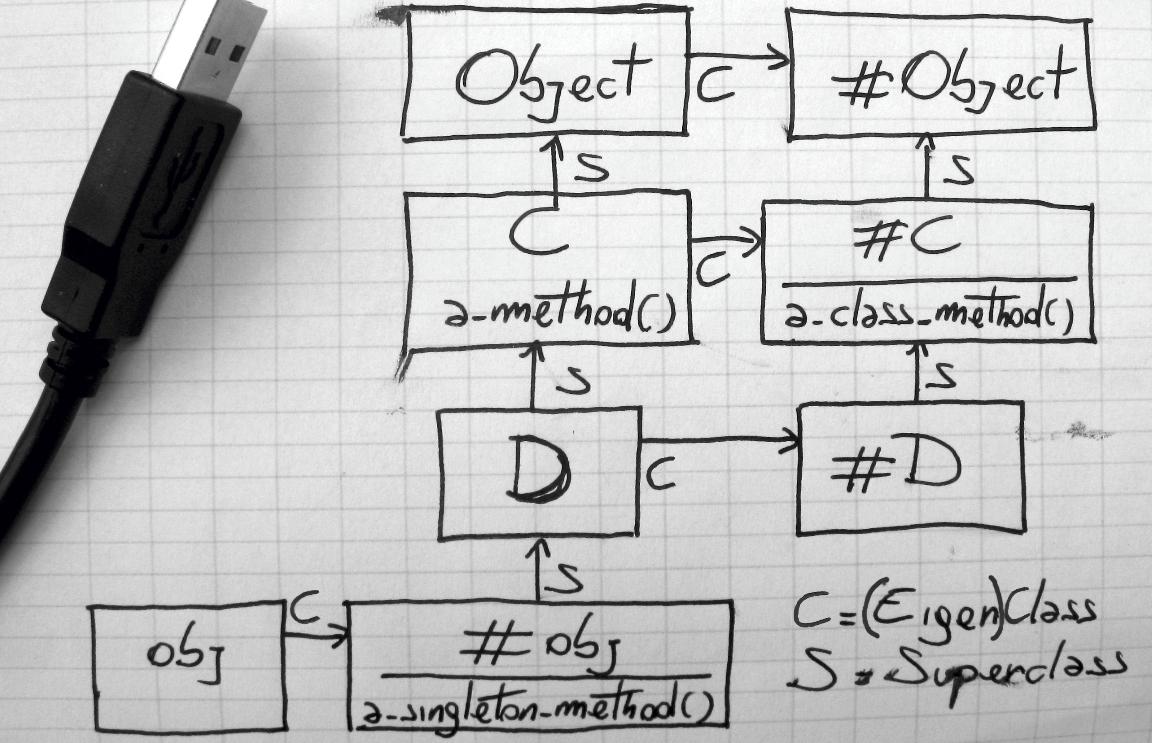 Object
C
#Object
S
S
C
a_method()
C
#C
a_class_method()
S
S
D
C
#D
S
obj
C
#obj
a_singleton_method()
C = (Eigen)Class
S = Superclass